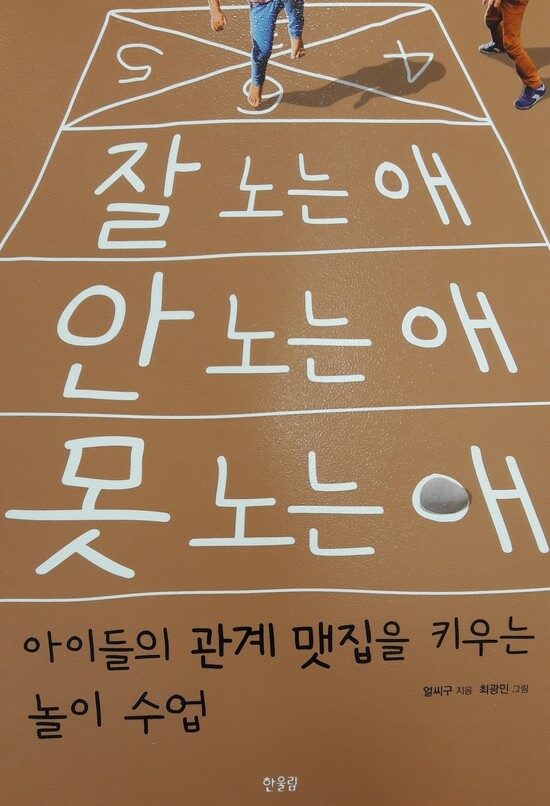 5 4
6
잘 노는 애
안 노는 애
못 노는 애
아이들의 관계 맷집을 키우는
놀이 수업
얼씨구 지음 최광민 그림
한울림